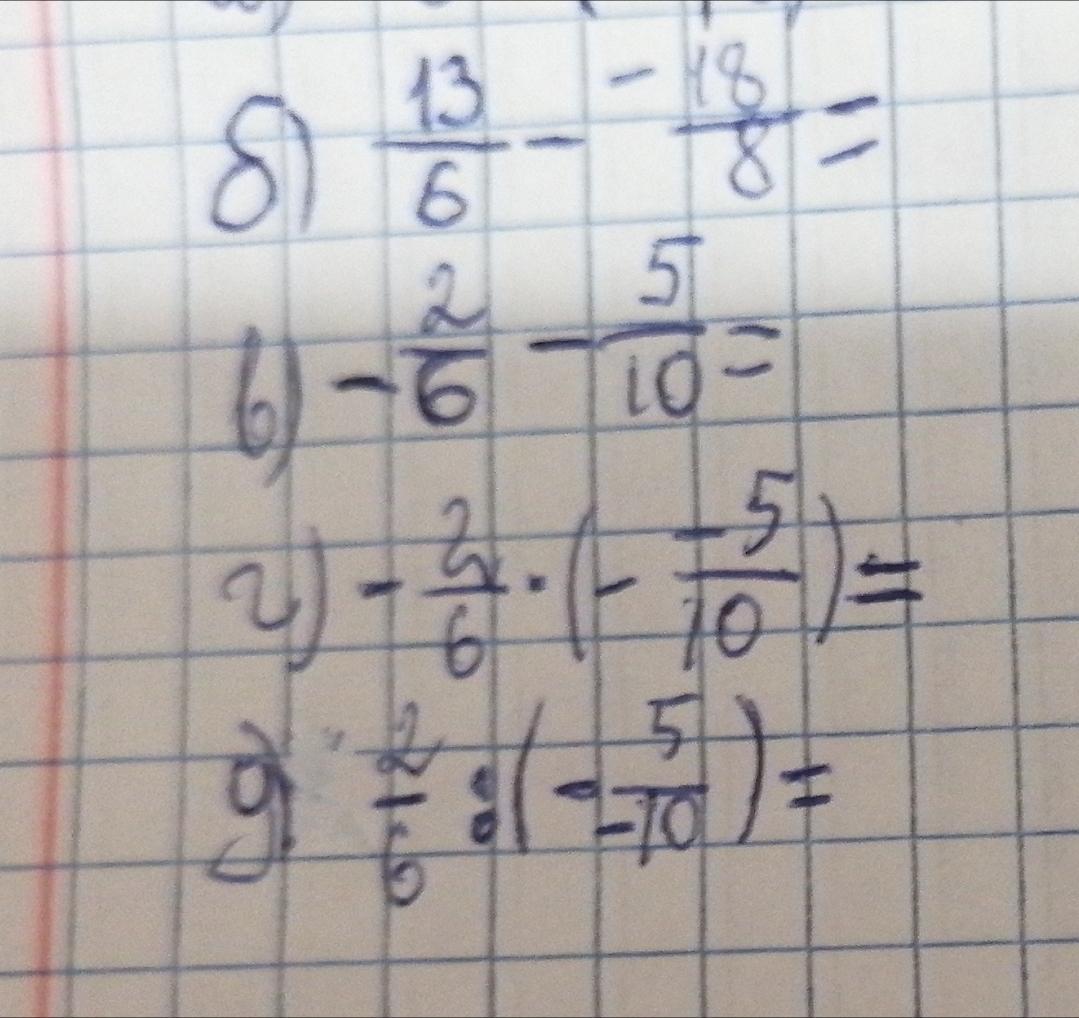 б) 13/6 - -18/8 =
в) - 2/6 - 5/10 =
г) - 2/6 · (- -5/10) =
д) 2/6 : (- 5/-10) =